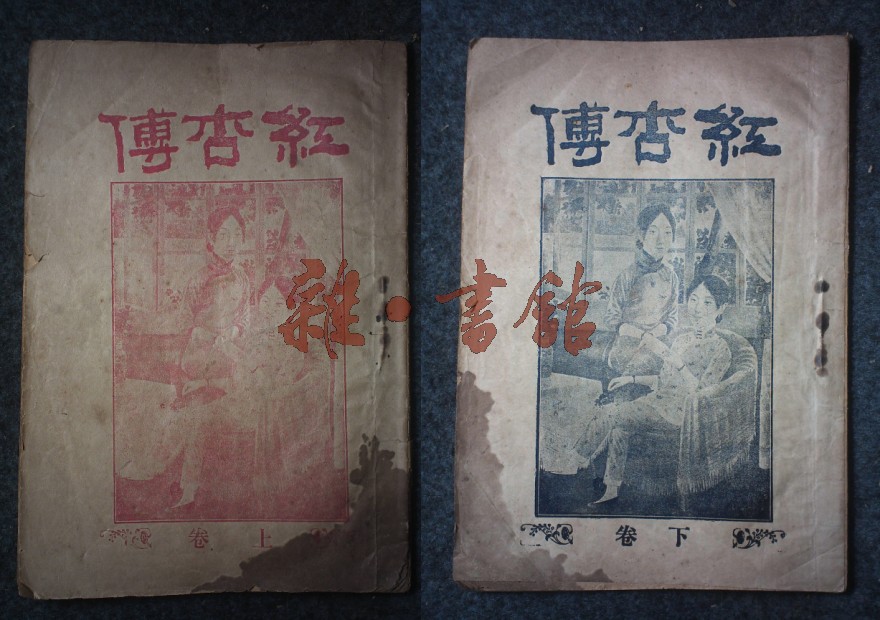 紅杏傳
上卷
紅杏傳
下卷
雜·書館